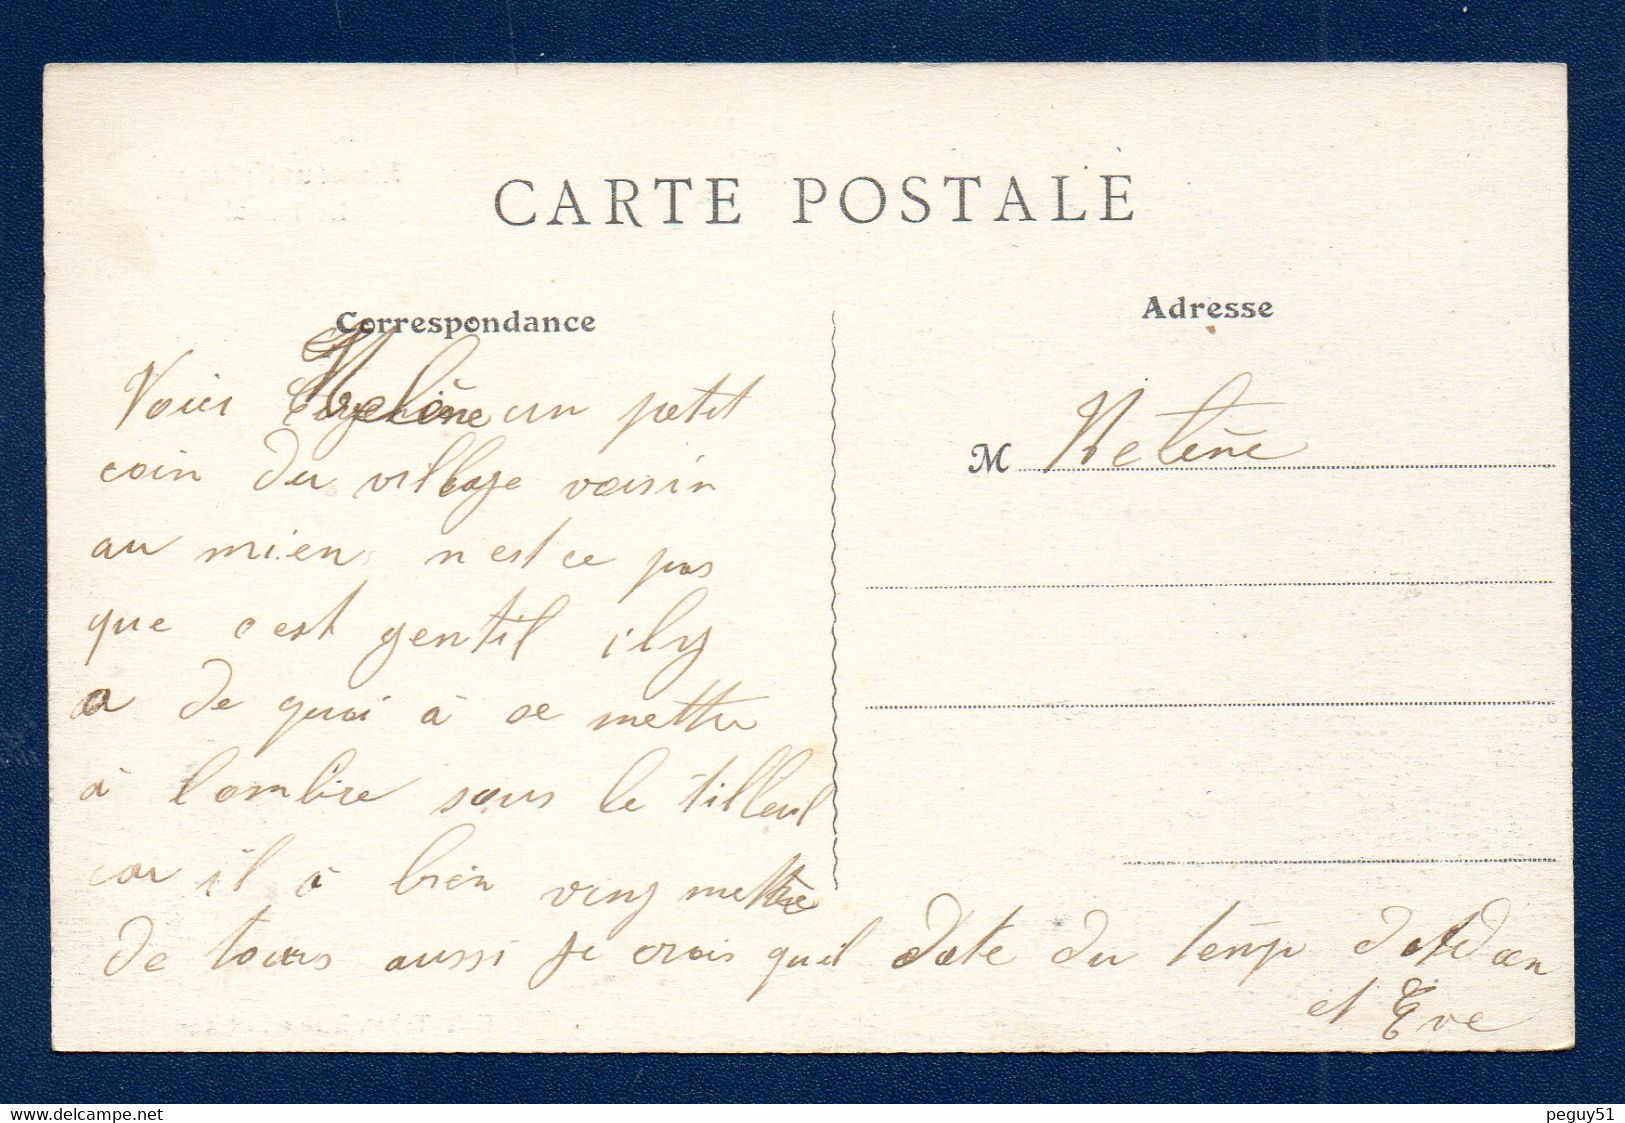 CARTE POSTALE
Correspondance
Adresse
Voici Helène un petit
coin du village voisin
au mien n'est ce pas
que c'est gentil il y
a de quoi à se mettre
à l'ombre sous le tilleul
car il à bien ving mettre
de tours aussi je crois qu'il date du temp d'Adan
et Eve
M Helène
delcampe.net
peguy51